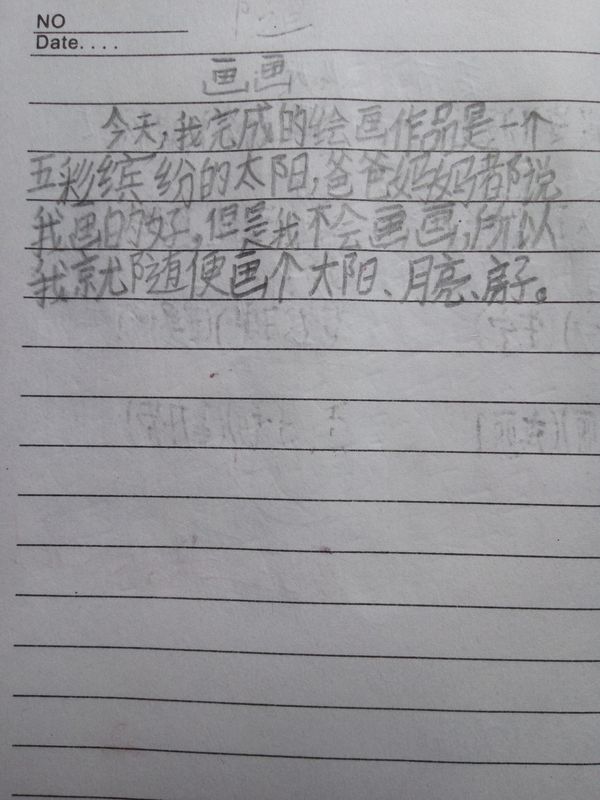 NO
Date....
画画
今天,我完成的绘画作品是一个
五彩缤纷的太阳,爸爸妈妈都说
我画的好,但是我不会画画,所以
我就随便画个太阳、月亮、房子。